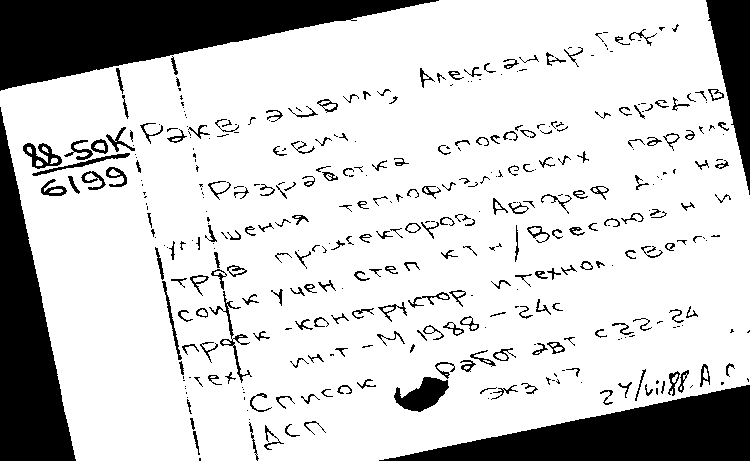 88-50К
6199
Раквиашвили, Александр Георги-
евич.
Разработка способов и средств
улучшения теплофизических параме-
тров прожекторов. Автореф дис на
соиск учен. степ к т н / Всесоюз н и
проек-конструктор. и технол. свето-
техн ин-т - М, 1988. - 24с
Список работ авт с 22-24
Экз N7
ДСП
24/VII88. А.